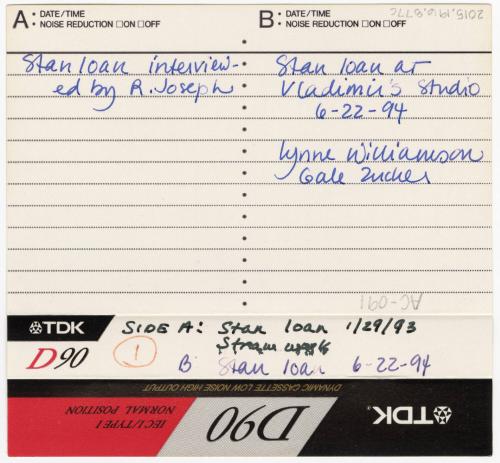 A: • DATE/TIME
• NOISE REDUCTION □ON □OFF
Stan Ioan interview-
ed by R. Joseph
B: • DATE/TIME
• NOISE REDUCTION □ON □OFF
2015.196.877c
Stan Ioan at
Vladimir's Studio
6-22-94
Lynne Williamson
Gale Zucker
AC-091
TDK
D90
1
SIDE A: Stan Ioan 1/29/93
B Stan Ioan 6-22-94
DYNAMIC CASSETTE LOW NOISE HIGH OUTPUT
TDK
D90
IEC I/TYPE I
NORMAL POSITION